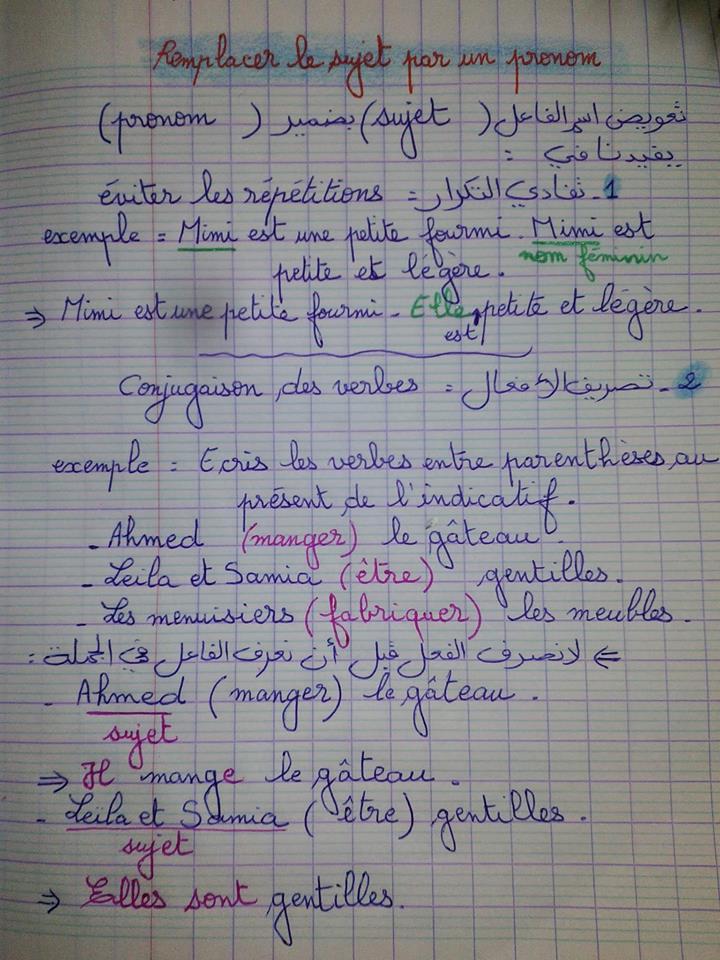 Remplacer le sujet par un pronom
تعويض اسم الفاعل (sujet) بضمير (pronom)
يفيدنا في :
1 - تفادي التكرار = éviter les répétitions
exemple = Mimi est une petite fourmi. Mimi est
nom féminin
petite et légère.
⇒ Mimi est une petite fourmi. Elle est petite et légère.
2 - تصريف الأفعال = Conjugaison des verbes
exemple = Ecris les verbes entre parenthèses au
présent de l'indicatif.
- Ahmed (manger) le gâteau.
- Leila et Samia (être) gentilles.
- Les menuisiers (fabriquer) les meubles.
⇐ لا نصرف الفعل قبل أن نعرف الفاعل في الجملة :
- Ahmed (manger) le gâteau.
sujet
⇒ Il mange le gâteau.
- Leila et Samia (être) gentilles.
sujet
⇒ Elles sont gentilles.